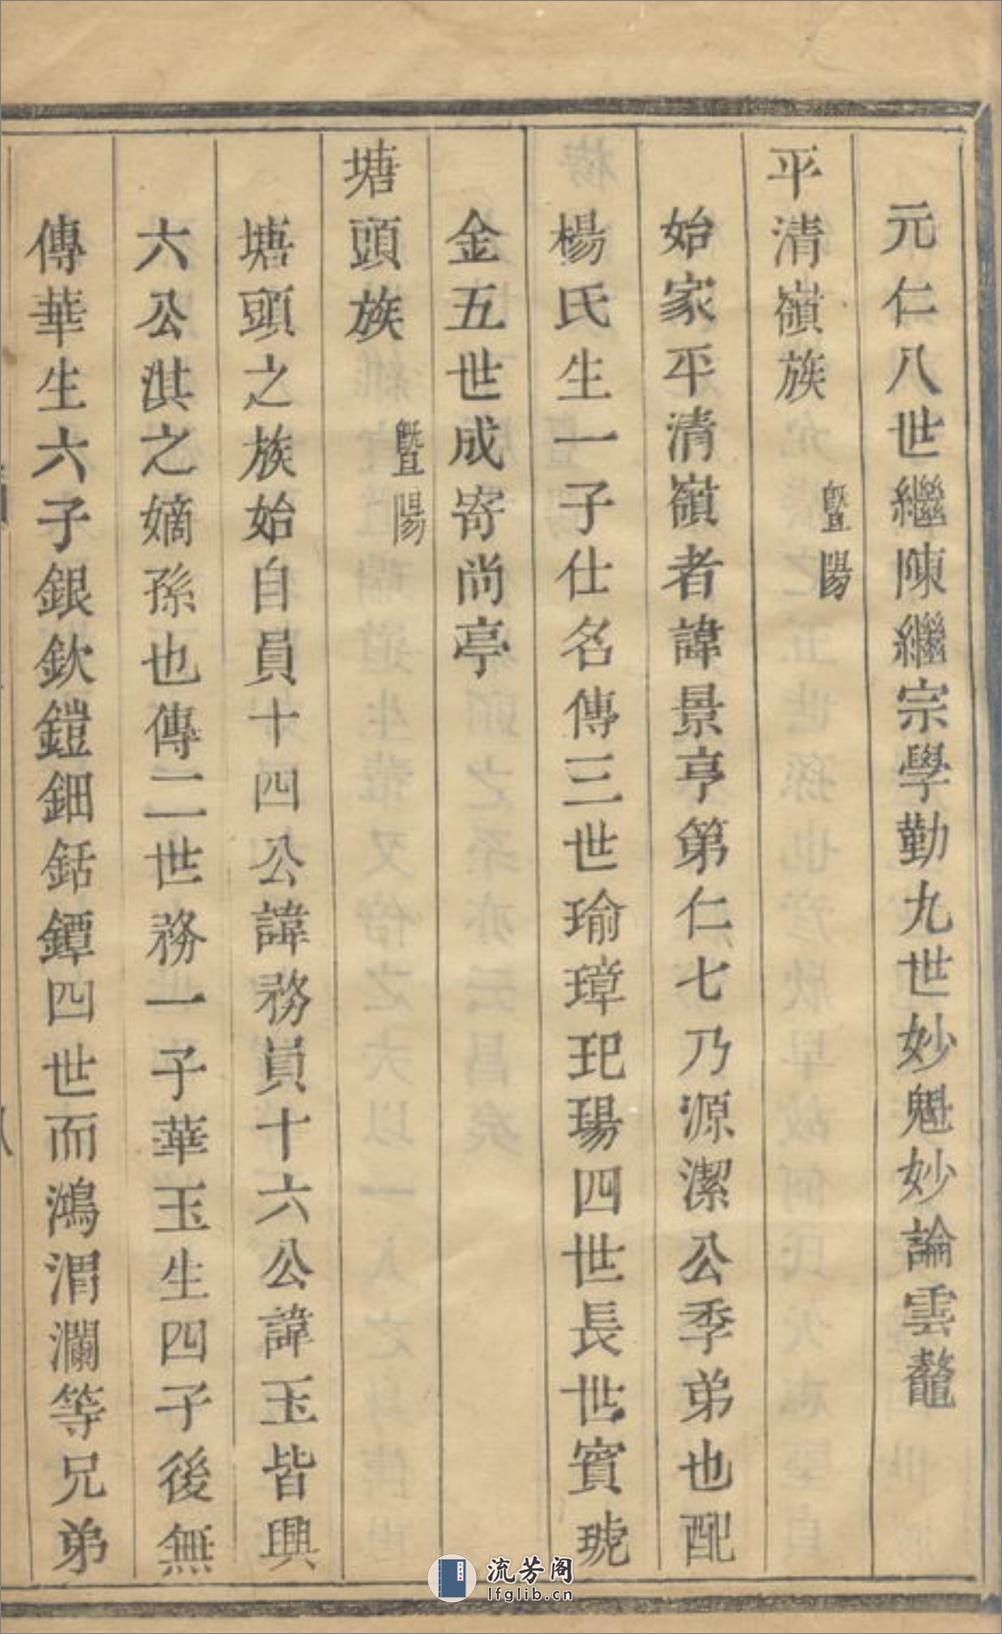 元仁八世繼陳繼宗學勤九世妙魁妙論雲鼇
平清嶺族 暨陽
始家平清嶺者諱景亨第仁七乃源潔公季弟也配
楊氏生一子仕名傳三世瑜璋玘瑒四世長世賓琥
金五世成寄尚亭
塘頭族 暨陽
塘頭之族始自員十四公諱務員十六公諱玉皆興
六公淇之嫡孫也傳二世務一子華玉生四子後無
傳華生六子銀欽鎧鈿銛鐔四世而鴻渭瀾等兄弟
流芳阁
lfglib.cn